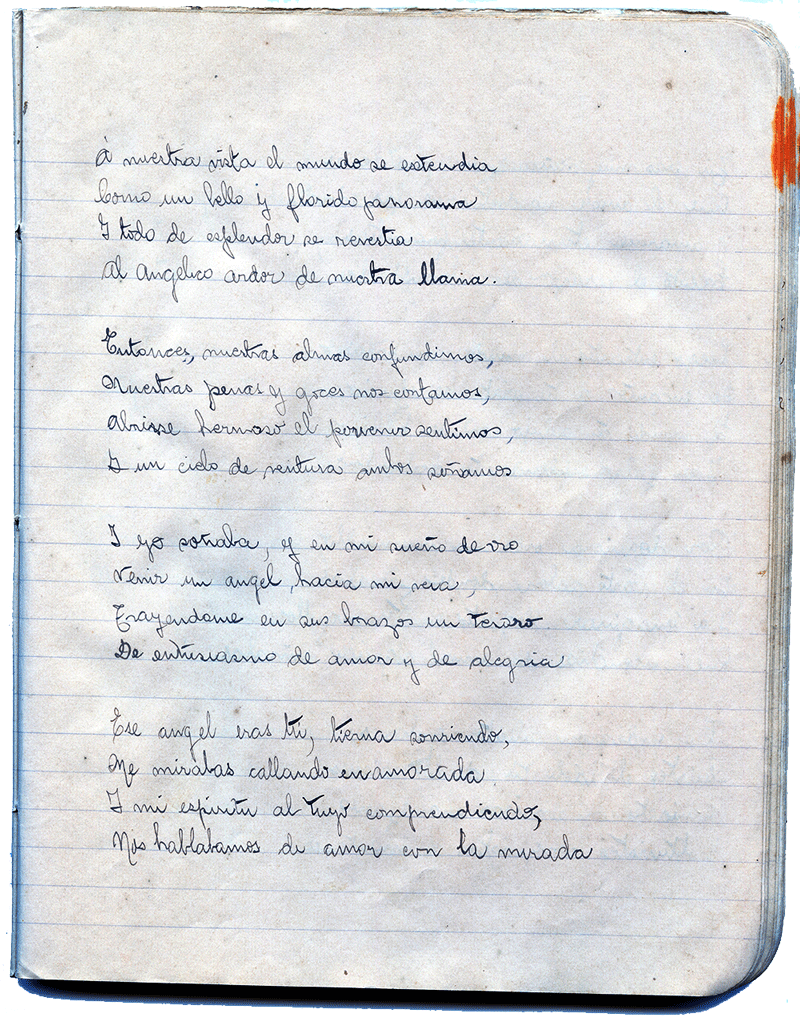 Á nuestra vista el mundo se estendia
Como un bello y florido panorama
I todo de esplendor se revestia
Al angelico ardor de nuestra llama.
Entonces, nuestras almas confundimos,
Nuestras penas y goces nos contamos,
Abrirse hermoso el porvenir sentimos,
I un cielo de ventura ambos soñamos
I yo soñaba, y en mi sueño de oro
Venir un angel, hacia mi veia,
Trayendome en sus brazos un tesoro
De entusiasmo de amor y de alegria
Ese angel eras tú, tierna sonriendo,
Me mirabas callando enamorada
I mi espiritu al tuyo comprendiendo,
Nos hablabamos de amor con la mirada